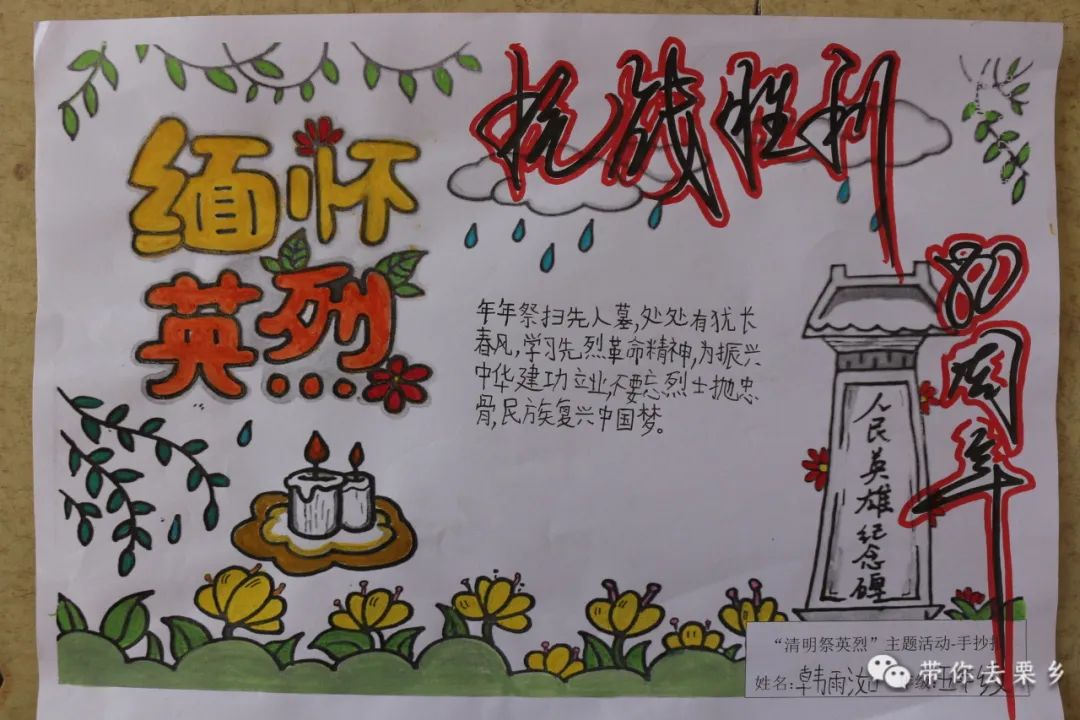 缅怀
英烈
抗战胜利
80周年
年年祭扫先人墓,处处有犹长
春风,学习先烈革命精神,为振兴
中华,建功立业,不要忘烈士抛忠
骨,民族复兴中国梦。
人民英雄纪念碑
“清明祭英烈”主题活动-手抄
姓名:韩雨
级:五年级
带你去栗乡